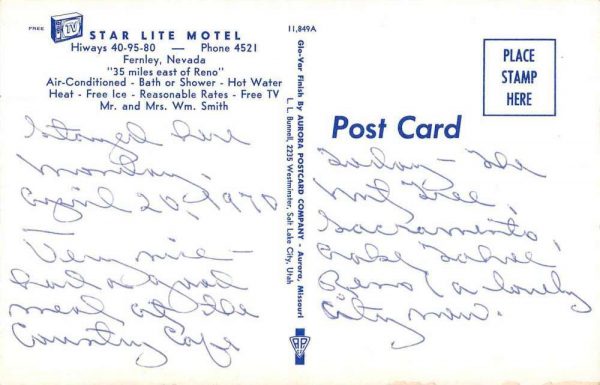 FREE
TV
STAR LITE MOTEL
Hiways 40-95-80 — Phone 4521
Fernley, Nevada
"35 miles east of Reno"
Air-Conditioned - Bath or Shower - Hot Water
Heat - Free Ice - Reasonable Rates - Free TV
Mr. and Mrs. Wm. Smith
Stayed here
Monday,
April 20, 1970
Very nice -
had a good
meal at the
Country Cafe
11,849A
Glo-Var Finish By AURORA POSTCARD COMPANY - Aurora, Missouri
L. L. Bunnell, 2235 Westminster, Salt Lake City, Utah
PLACE
STAMP
HERE
Post Card
Today - The
Nut Tree,
Sacramento,
Lake Tahoe,
Reno (a lovely
City now.